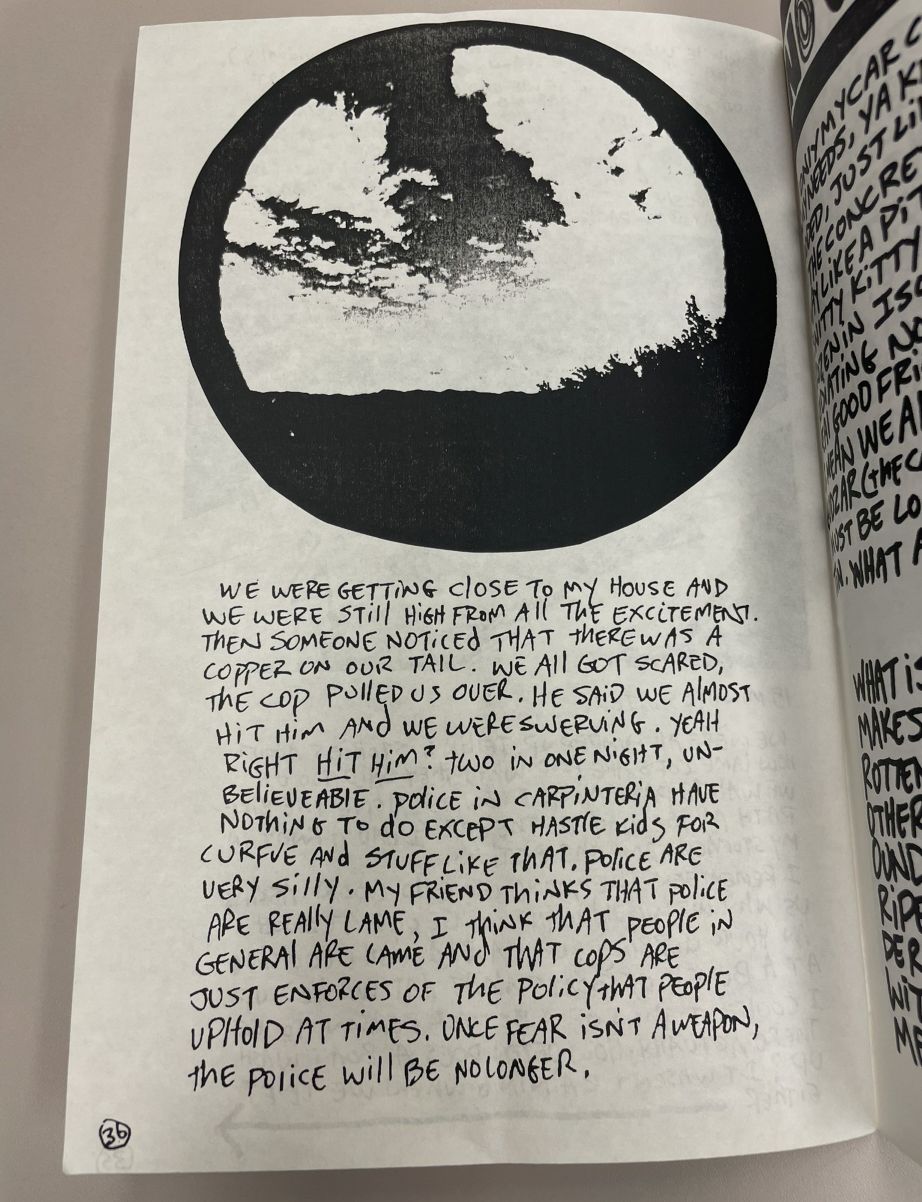 WE WERE GETTING CLOSE TO MY HOUSE AND
WE WERE STILL HIGH FROM ALL THE EXCITEMENT.
THEN SOMEONE NOTICED THAT THERE WAS A
COPPER ON OUR TAIL. WE ALL GOT SCARED,
THE COP PULLED US OVER. HE SAID WE ALMOST
HIT HIM AND WE WERE SWERVING. YEAH
RIGHT HIT HIM? TWO IN ONE NIGHT, UN-
BELIEVEABLE. POLICE IN CARPINTERIA HAVE
NOTHING TO DO EXCEPT HASTLE KIDS FOR
CURFUE AND STUFF LIKE THAT. POLICE ARE
VERY SILLY. MY FRIEND THINKS THAT POLICE
ARE REALLY LAME, I THINK THAT PEOPLE IN
GENERAL ARE LAME AND THAT COPS ARE
JUST ENFORCES OF THE POLICY THAT PEOPLE
UPHOLD AT TIMES. ONCE FEAR ISN'T A WEAPON,
THE POLICE WILL BE NO LONGER.
36
MY CAR
NEEDS, YA
JUST
THE CONCRE
LIKE A PIT
KITTY
IN
NO
GOOD FRI
MEAN WE
(THE
MUST BE LO
WHAT
WHAT IS
MAKES
ROTTEN
OTHER
OUND
RIPE
DER
WIT
ME